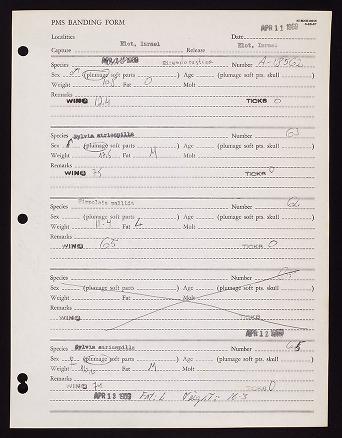 PMS BANDING FORM
Localities Date APR 11 1969
Capture Elat, Israel Release Elat, Israel
Species Hirundo rustica Number A-18562
Sex ♂ (plumage soft parts) Age (plumage soft pts. skull)
Weight Fat 0 Molt
Remarks
WING 124 TICKS 0
Species Sylvia atricapilla Number 63
Sex ♂ (plumage soft parts) Age (plumage soft pts. skull)
Weight Fat M Molt
Remarks
WING 75 TICKS 0
Species Hippolais pallida Number
Sex (plumage soft parts) Age (plumage soft pts. skull)
Weight 11.4 Fat L Molt
Remarks
WING 65 TICKS 0
Species Number
Sex (plumage soft parts) Age (plumage soft pts. skull)
Weight Fat Molt
Remarks
WING TICKS
APR 12 1969
Species Sylvia atricapilla Number 65
Sex (plumage soft parts) Age (plumage soft pts. skull)
Weight Fat M Molt
Remarks
WING 74 TICKS 0
APR 13 1969 Fat: L Weight: